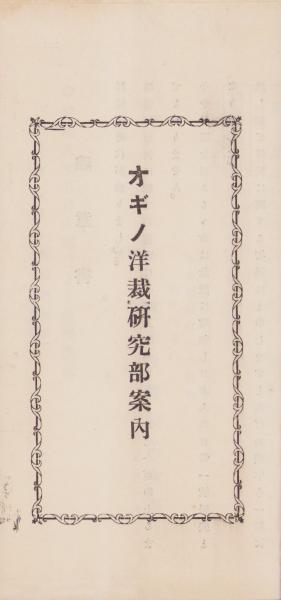 オギノ洋裁研究部案內